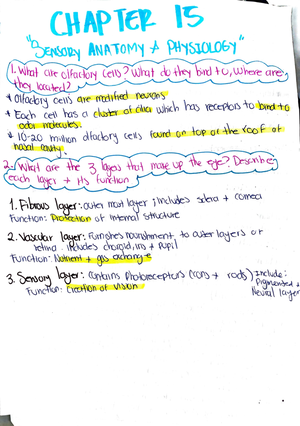 CHAPTER 15
"SENSORY ANATOMY + PHYSIOLOGY"
1. What are olfactory cells? What do they bind to, Where are
they located?
* olfactory cells are modified neurons
* Each cell has a cluster of cilia which has receptors to bind to
odor molecules.
* 10-20 million olfactory cells found on top of the roof of
nasal cavity.
2. What are the 3 layers that make up the eye? Describe
each layer + its function
1. Fibrous layer: outer most layer includes sclera + cornea
Function: Protection of internal structure
2. Vascular layer: Furnishes nourishment to outer layers of
retina. Includes choroid, iris + pupil
Function: Nutrient + gas exchange
3. Sensory layer: contains Photoreceptors (cons + rods) Include:
Pigmented +
Neural layer
Function: Creation of vision